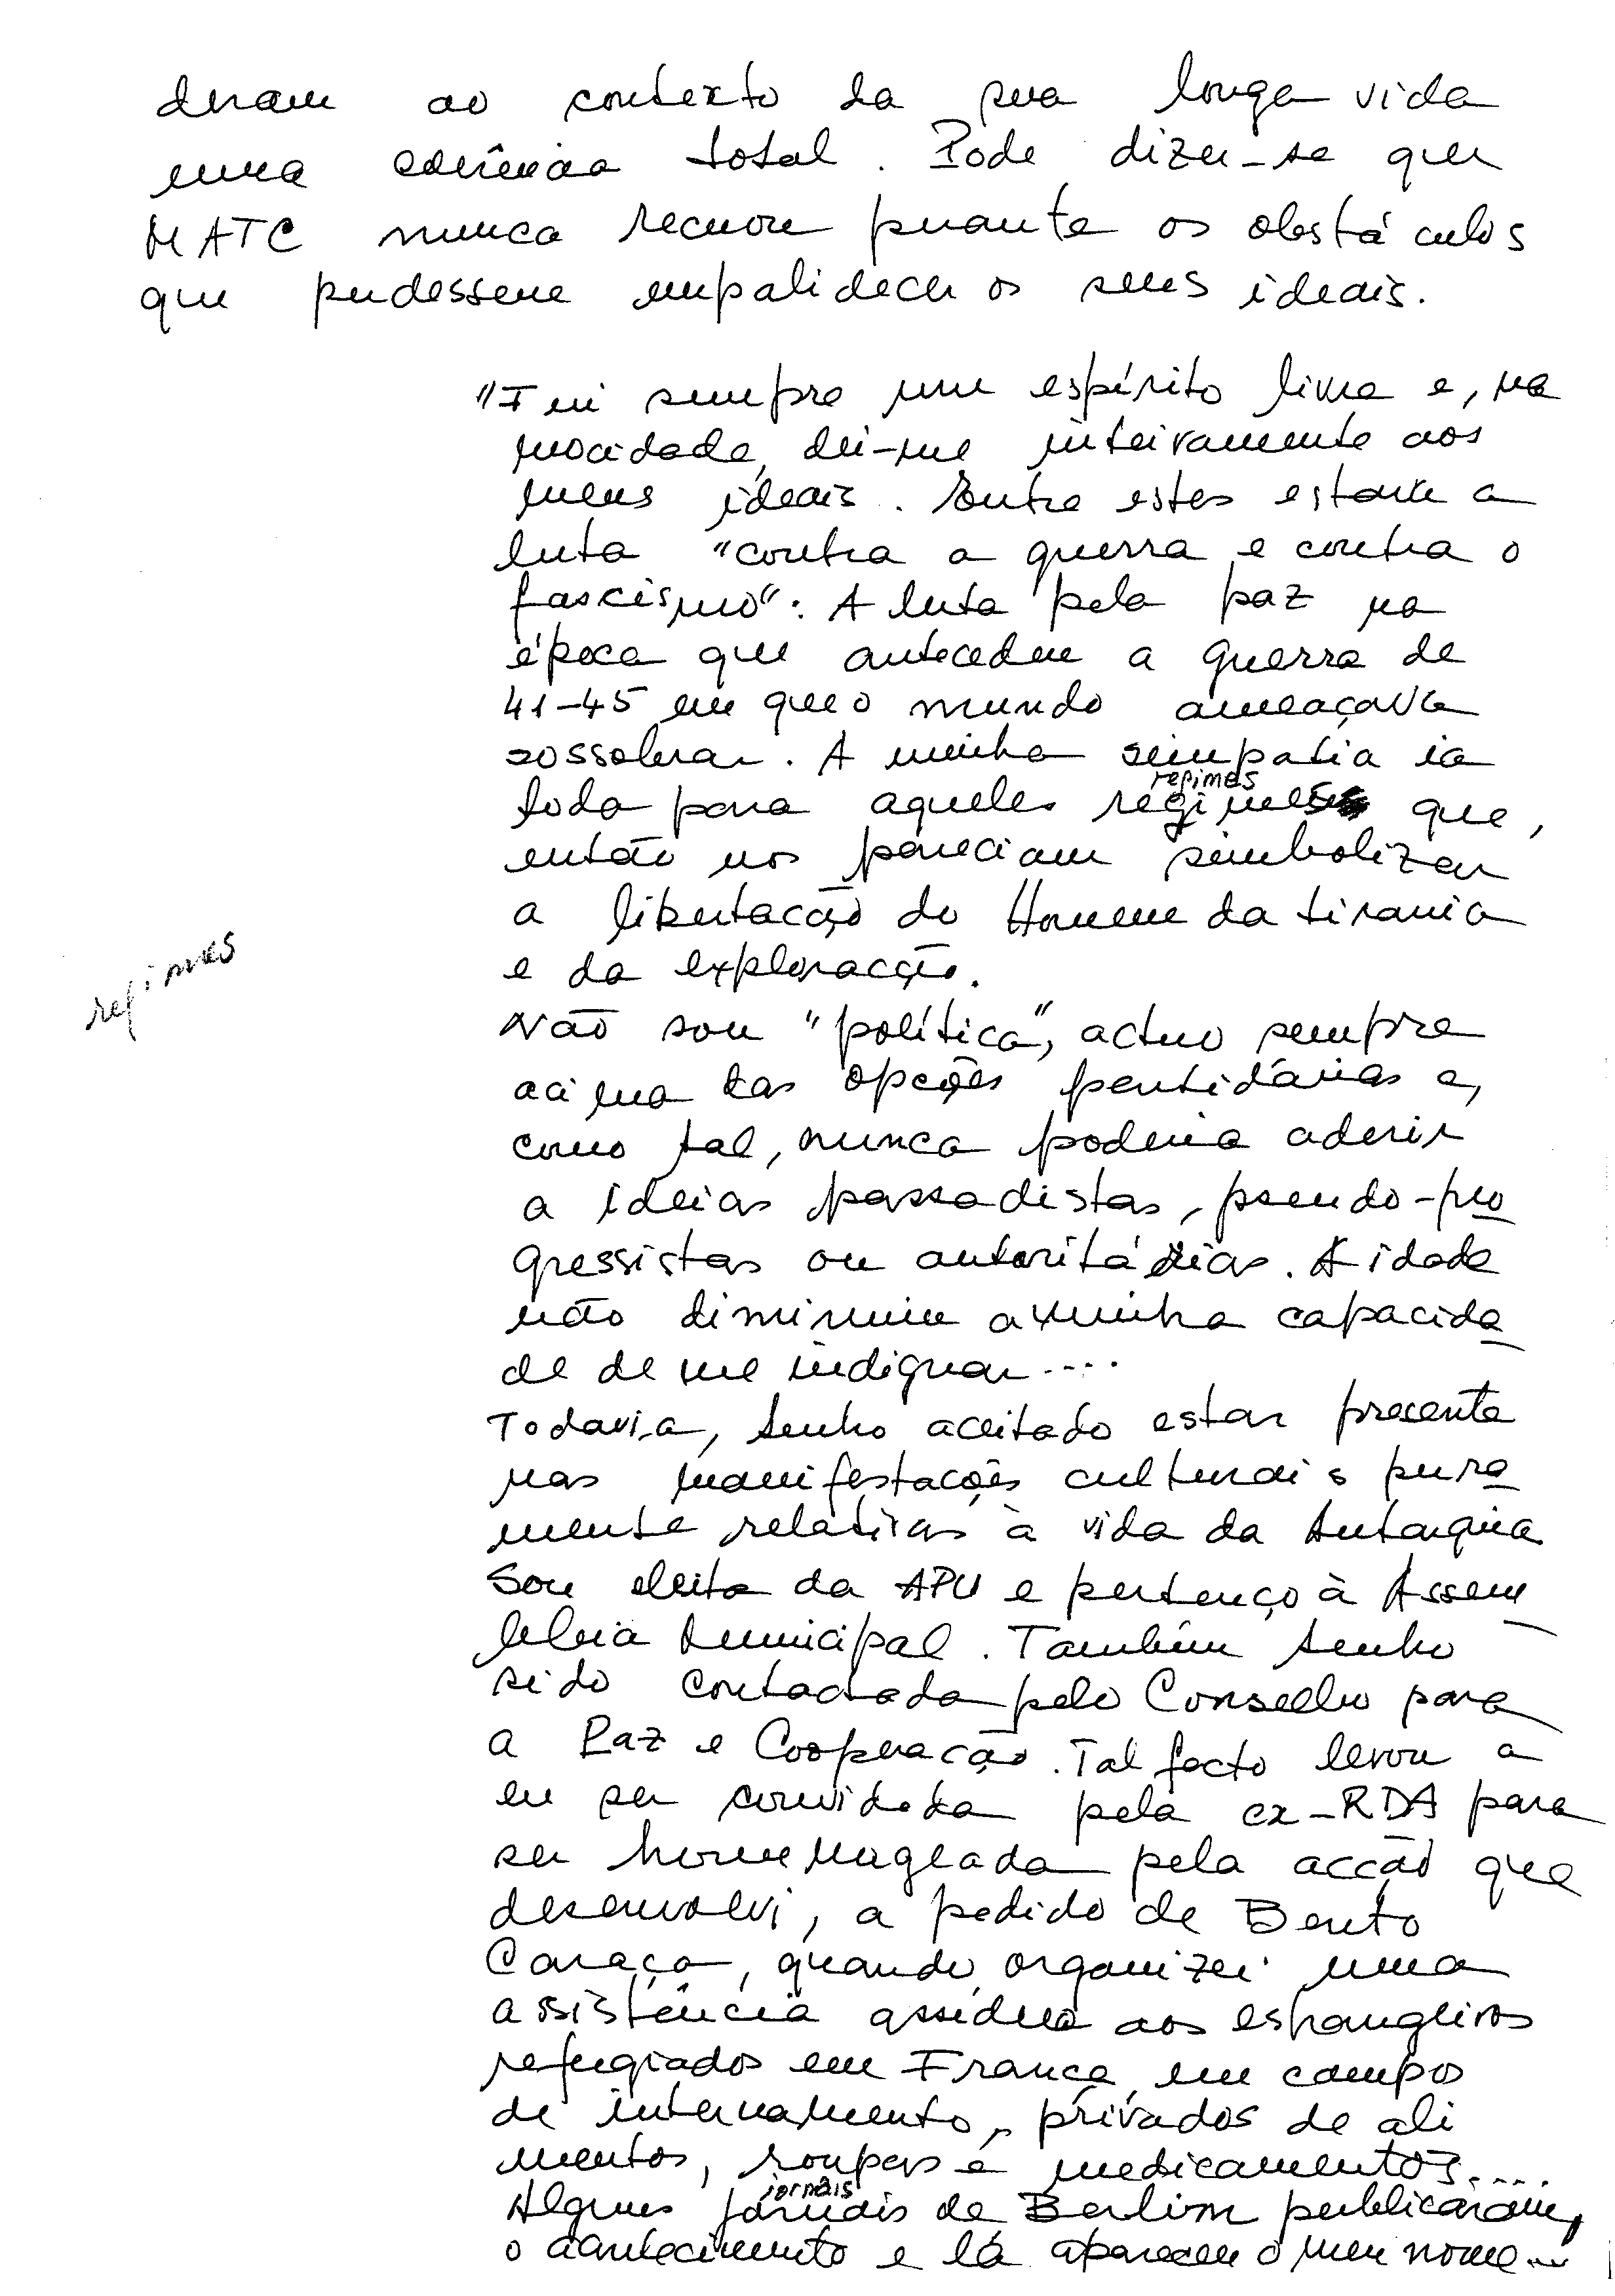 deram ao contexto da sua longa vida
uma coerência total. Pode dizer-se que
MATC nunca recuou perante os obstáculos
que pudessem empalidecer os seus ideais.
"Fui sempre um espírito livre e, na
mocidade, dei-me inteiramente aos
meus ideais. Entre estes estava a
luta "contra a guerra e contra o
fascismo". A luta pela paz na
época que antecedeu a guerra de
41-45 em que o mundo ameaçava
sossobrar. A minha simpatia ia
regimes
toda para aqueles regimes que,
então nos pareciam simbolizar
a libertacção do Homem da tirania
e da exploracção.
regimes
Não sou "política", actuo sempre
acima das opções partidárias e,
como tal, nunca poderia aderir
a ideias passadistas, pseudo-pro
gressistas ou autoritárias. A idade
não diminuiu a minha capacida
de de me indignar....
Todavia, tenho aceitado estar presente
nas manifestações culturais pura
mente relativas à vida da Autarquia
Sou eleita da APU e pertenço à Assem
bleia Municipal. Também tenho
sido contactada pelo Conselho para
a Paz e Cooperação. Tal facto levou a
eu ser convidada pela ex-RDA para
ser homenageada pela acção que
desenvolvi, a pedido de Bento
Caraça, quando organizei uma
assistência assídua aos estrangeiros
refugiados em França, em campos
de internamento, privados de ali
mentos, roupas e medicamentos....
jornais
Alguns jornais de Berlim publicaram,
o acontecimento e lá apareceu o meu nome...